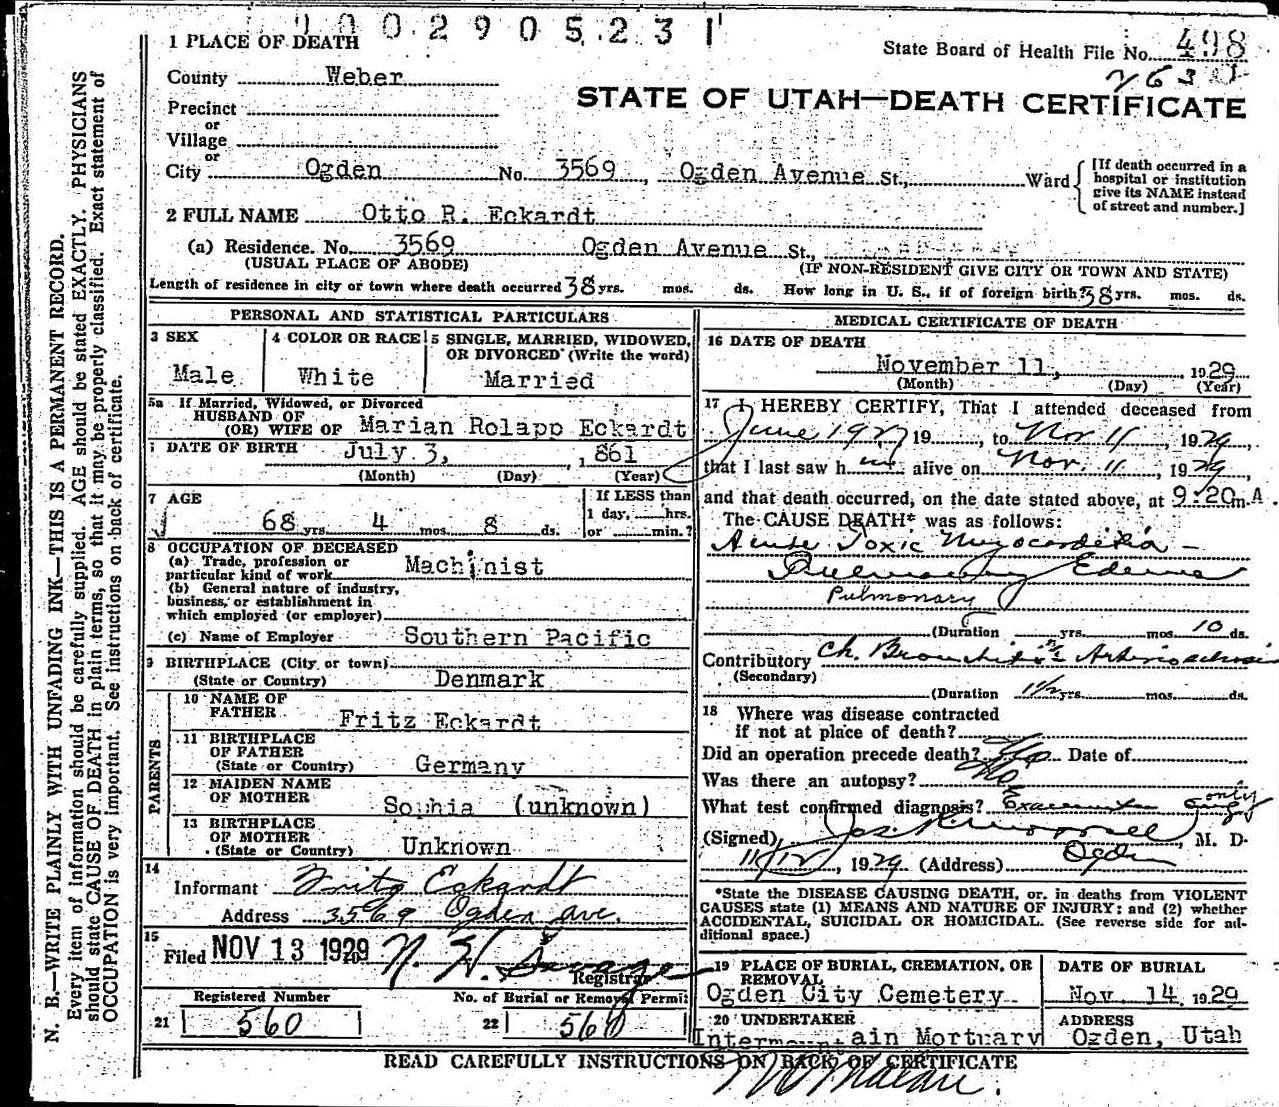 1002905231
1 PLACE OF DEATH
State Board of Health File No. 498
263
County Weber
STATE OF UTAH—DEATH CERTIFICATE
Precinct
or
Village
or
City Ogden No. 3569, Ogden Avenue St., Ward
[If death occurred in a hospital or institution give its NAME instead of street and number.]
2 FULL NAME Otto R. Eckardt
(a) Residence. No. 3569 Ogden Avenue St.,
(USUAL PLACE OF ABODE) (IF NON-RESIDENT GIVE CITY OR TOWN AND STATE)
Length of residence in city or town where death occurred 38 yrs. mos. ds. How long in U. S., if of foreign birth? 38 yrs. mos. ds.
PERSONAL AND STATISTICAL PARTICULARS
3 SEX
Male
4 COLOR OR RACE
White
5 SINGLE, MARRIED, WIDOWED, OR DIVORCED (Write the word)
Married
5a If Married, Widowed, or Divorced
HUSBAND OF
(OR) WIFE OF Marian Rolapp Eckardt
DATE OF BIRTH July 3, 1861
(Month) (Day) (Year)
7 AGE
68 yrs. 4 mos. 8 ds.
If LESS than
1 day, hrs.
or min.?
8 OCCUPATION OF DECEASED
(a) Trade, profession or
particular kind of work Machinist
(b) General nature of industry,
business, or establishment in
which employed (or employer)
(c) Name of Employer Southern Pacific
9 BIRTHPLACE (City or town)
(State or Country) Denmark
PARENTS
10 NAME OF
FATHER Fritz Eckardt
11 BIRTHPLACE
OF FATHER
(State or Country) Germany
12 MAIDEN NAME
OF MOTHER Sophia (unknown)
13 BIRTHPLACE
OF MOTHER
(State or Country) Unknown
14
Informant Fritz Eckardt
Address 3569 Ogden Ave.
15
Filed NOV 13 1929 N. H. Savage
Registrar
Registered Number
21 560
No. of Burial or Removal Permit
22 560
MEDICAL CERTIFICATE OF DEATH
16 DATE OF DEATH
November 11, 1929
(Month) (Day) (Year)
17 I HEREBY CERTIFY, That I attended deceased from
June 1927 19 , to Nov 11, 1929,
that I last saw him alive on Nov. 11, 1929
and that death occurred, on the date stated above, at 9:20 m. A.
The CAUSE DEATH* was as follows:
Acute Toxic Myocarditis -
Pulmonary Edema
Pulmonary
(Duration yrs. mos. 10 ds.
Contributory Ch. Bronchitis Arteriosclerosis
(Secondary)
(Duration 1 1/2 yrs. mos. ds.
18 Where was disease contracted
if not at place of death?
Did an operation precede death? No Date of
Was there an autopsy? No
What test confirmed diagnosis? Examination only
(Signed) , M. D.
11/12, 1929 (Address) Ogden
*State the DISEASE CAUSING DEATH, or, in deaths from VIOLENT
CAUSES state (1) MEANS AND NATURE OF INJURY; and (2) whether
ACCIDENTAL, SUICIDAL OR HOMICIDAL. (See reverse side for ad-
ditional space.)
19 PLACE OF BURIAL, CREMATION, OR
REMOVAL
Ogden City Cemetery
DATE OF BURIAL
Nov. 14, 1929
20 UNDERTAKER
Intermountain Mortuary
ADDRESS
Ogden, Utah
READ CAREFULLY INSTRUCTIONS ON BACK OF CERTIFICATE
N. B.—WRITE PLAINLY WITH UNFADING INK—THIS IS A PERMANENT RECORD.
Every item of information should be carefully supplied. AGE should be stated EXACTLY. PHYSICIANS
should state CAUSE OF DEATH in plain terms, so that it may be properly classified. Exact statement of
OCCUPATION is very important. See instructions on back of certificate.